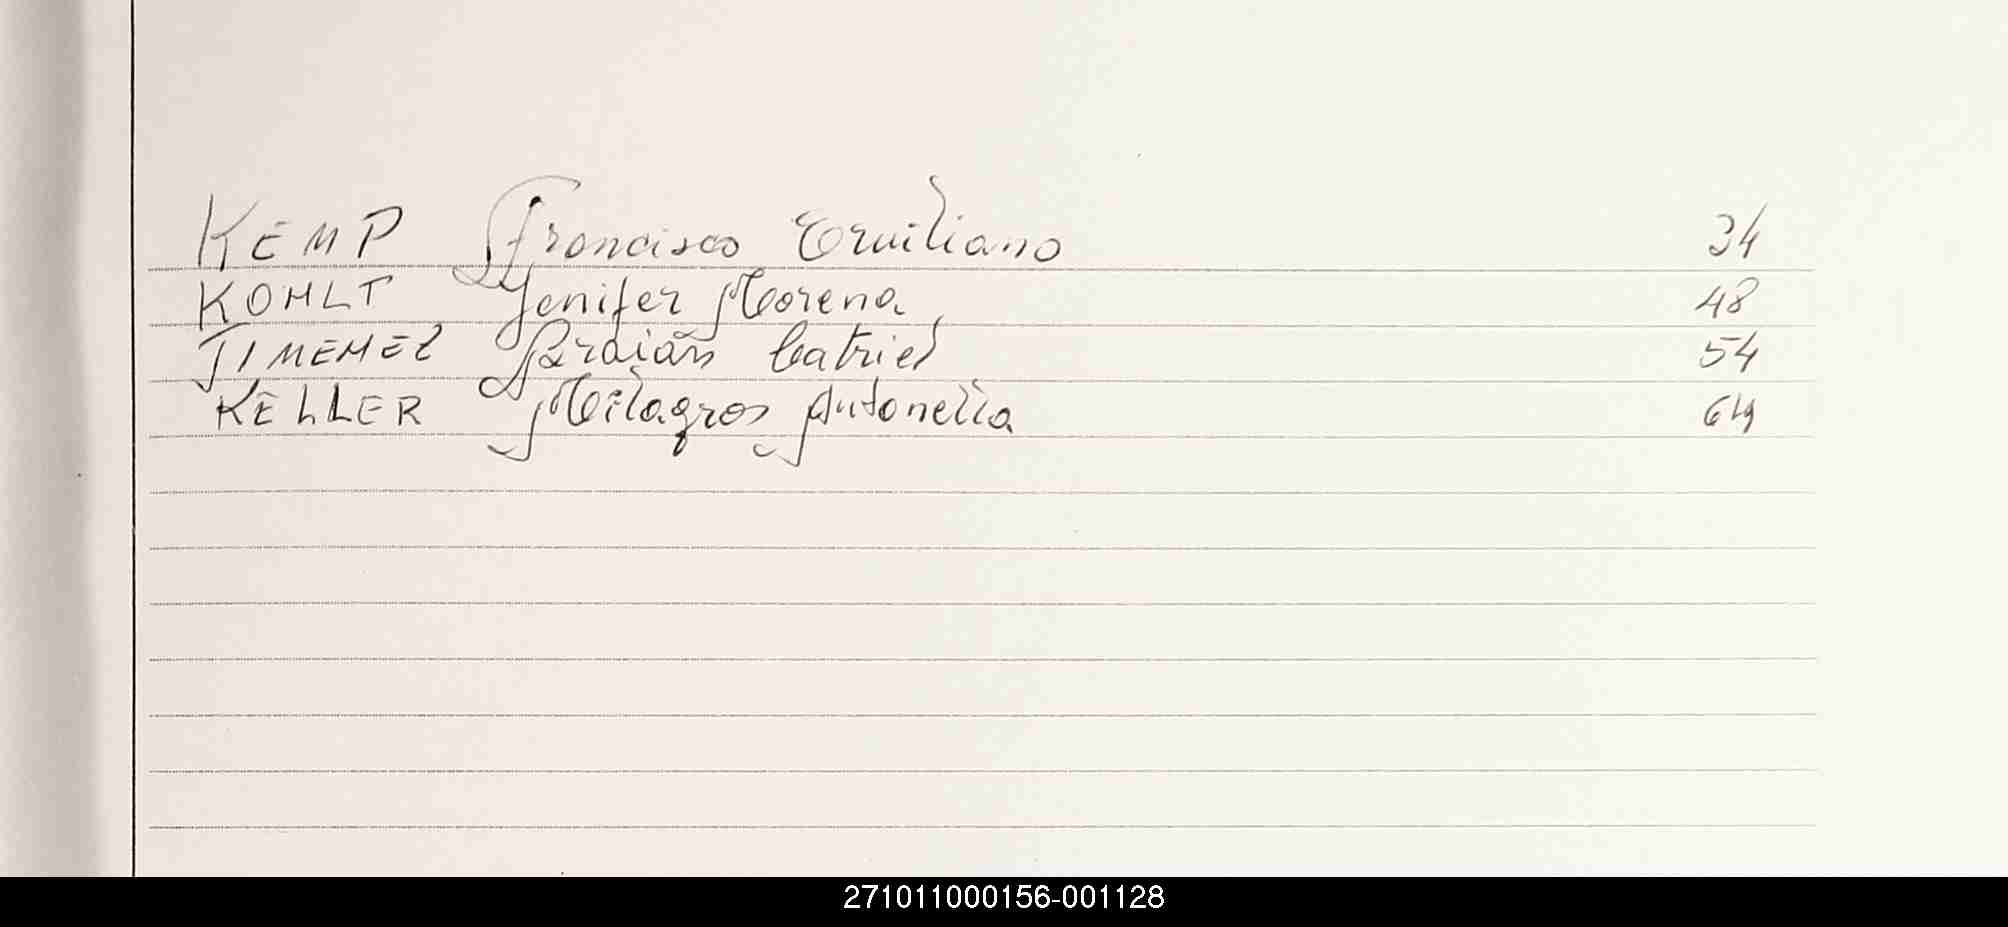 KEMP Francisco Emiliano 34
KOHLT Jenifer Morena 48
JIMENEZ Braian Catriel 54
KELLER Milagros Antonella 64
271011000156-001128